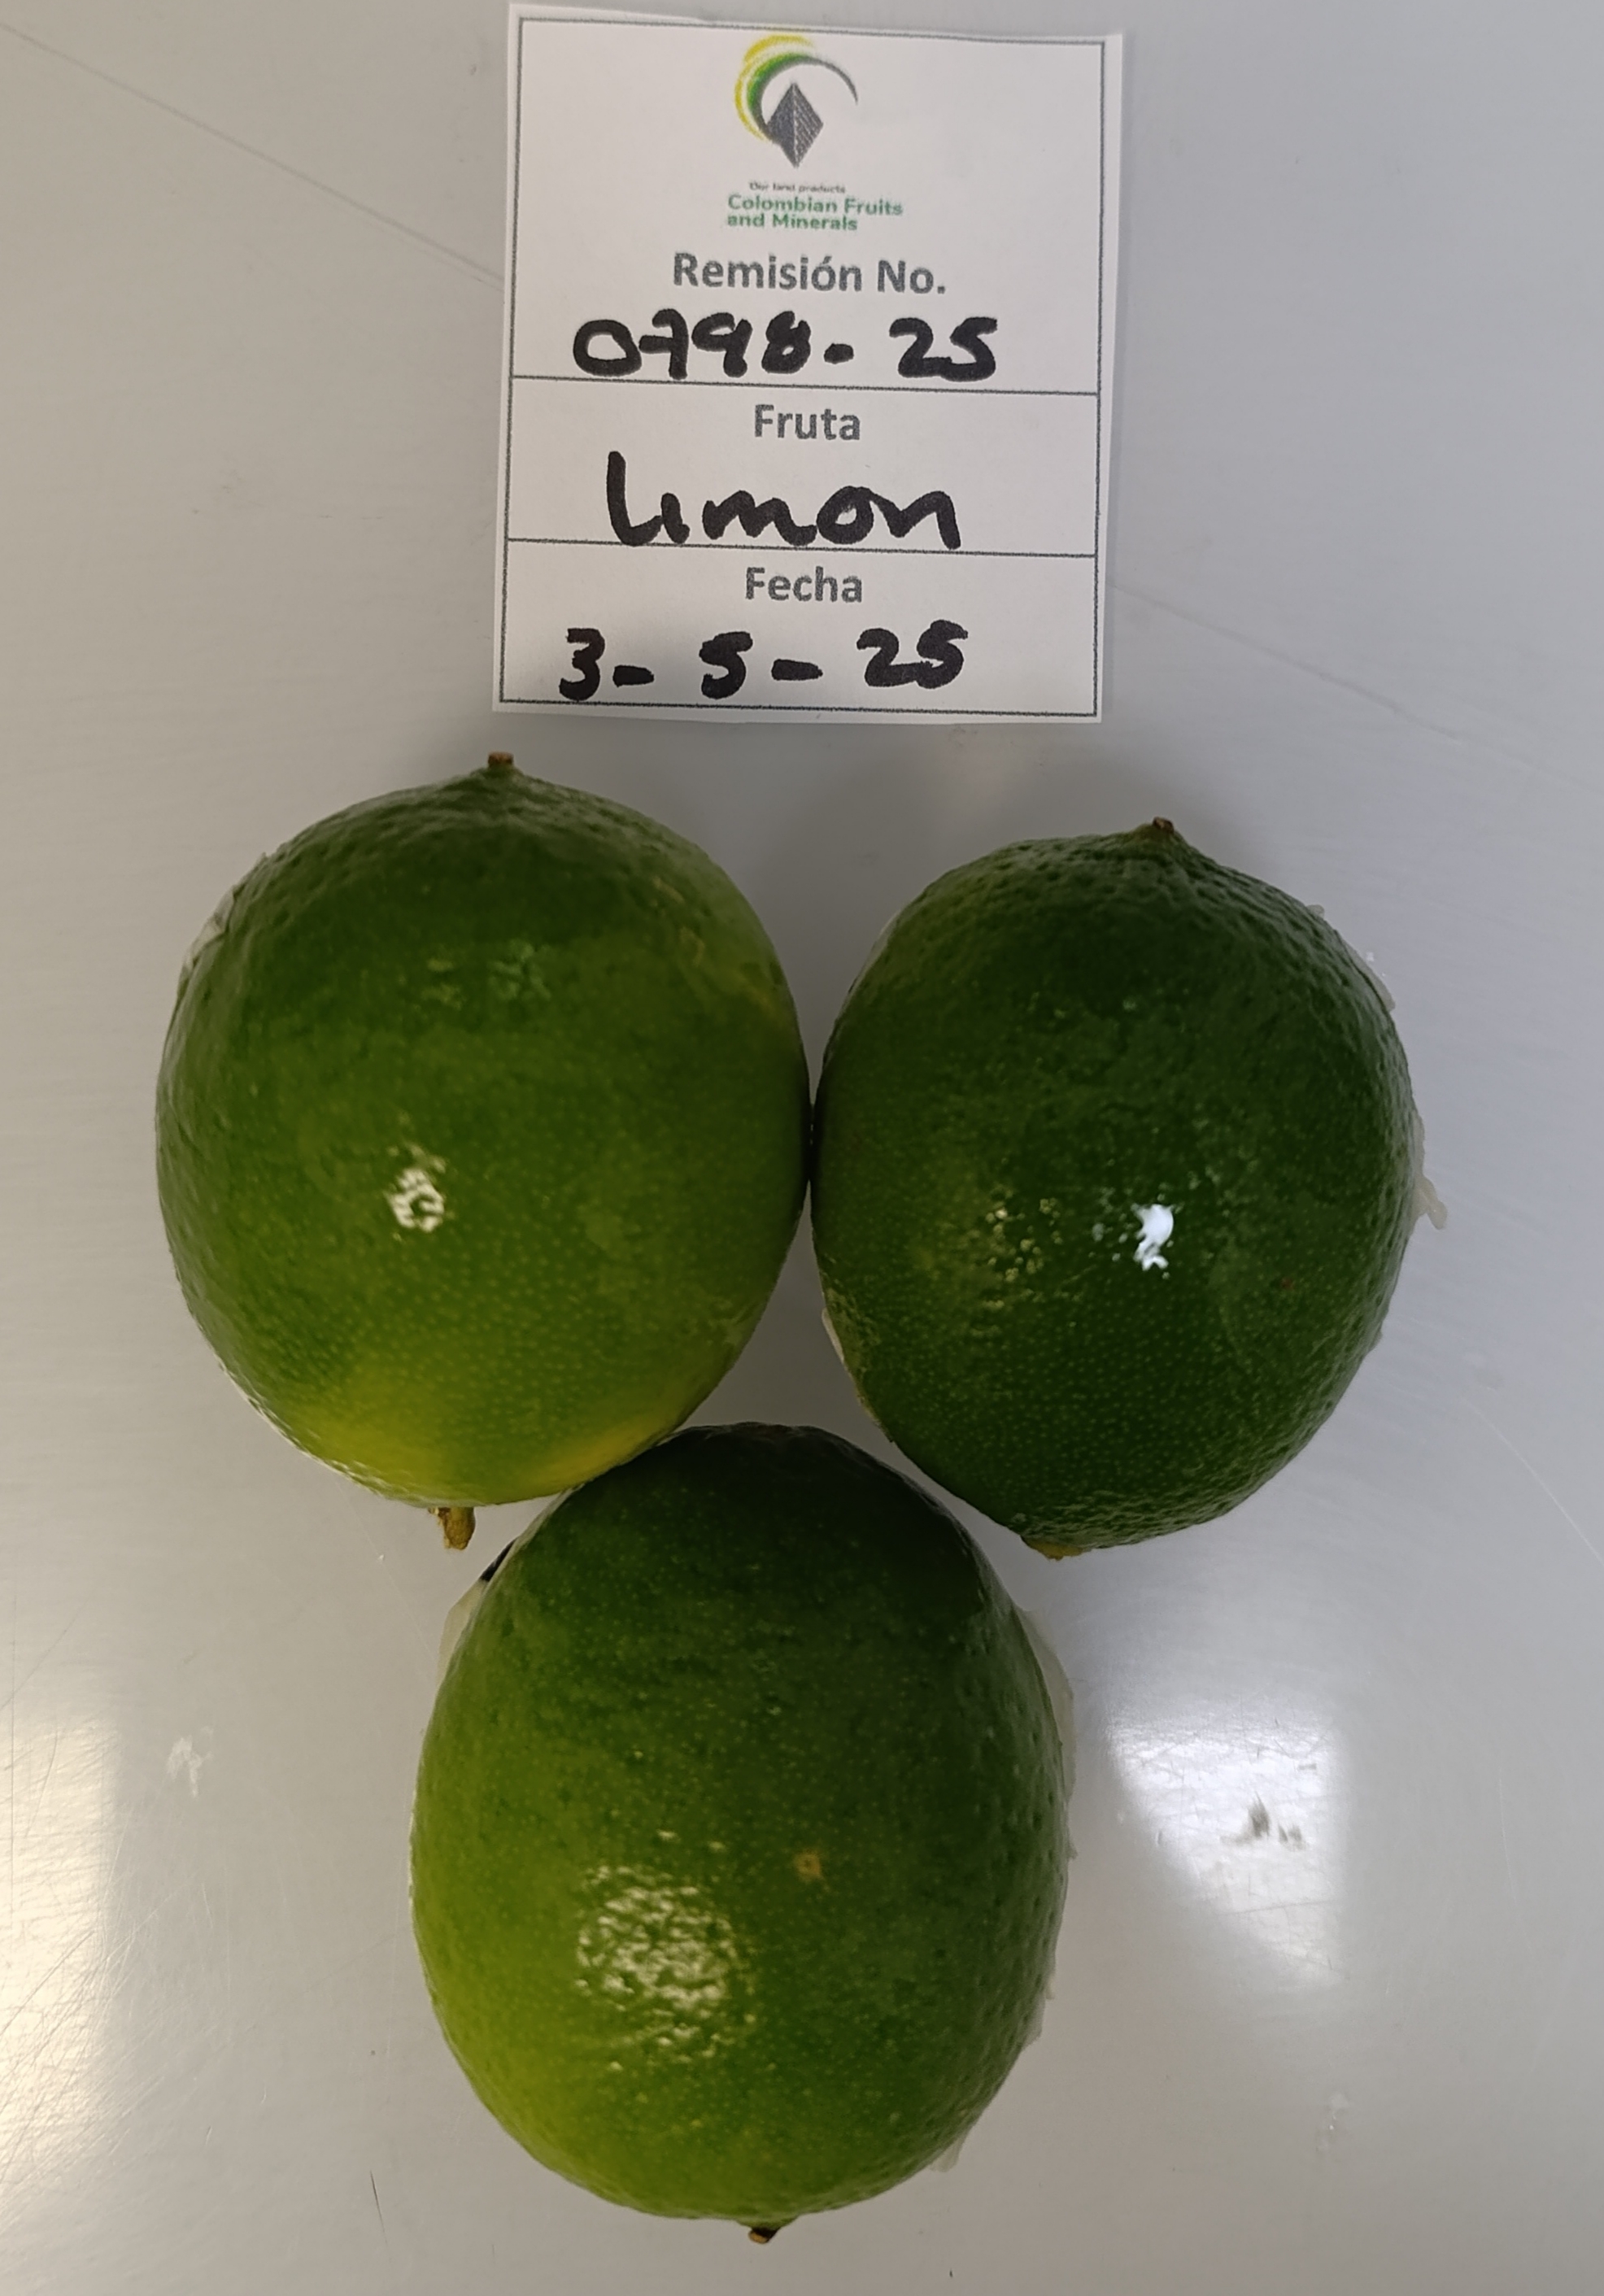 Our land products
Colombian Fruits
and Minerals
Remisión No.
0798-25
Fruta
Limon
Fecha
3-5-25